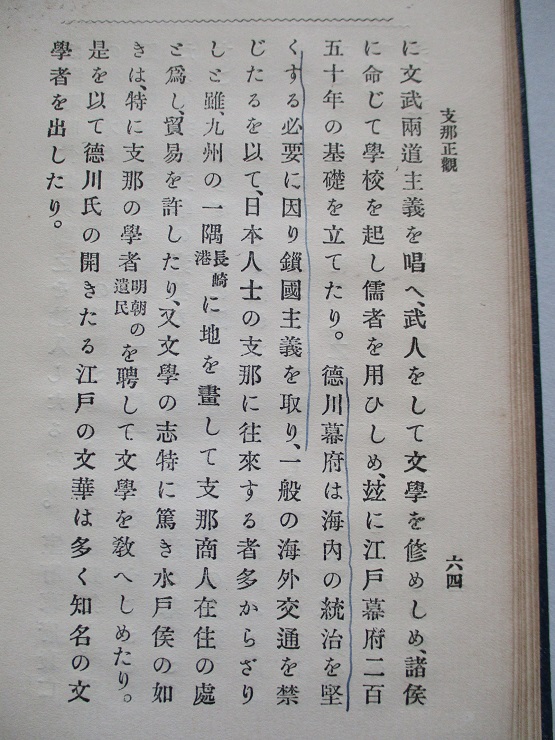 支那正觀
六四
に文武兩道主義を唱へ、武人をして文學を修めしめ、諸侯
に命じて學校を起し儒者を用ひしめ、玆に江戸幕府二百
五十年の基礎を立てたり。德川幕府は海內の統治を堅
くする必要に因り鎖國主義を取り、一般の海外交通を禁
じたるを以て、日本人士の支那に往來する者多からざり
しと雖、九州の一隅長崎港に地を畫して支那商人在住の處
と爲し、貿易を許したり、又文學の志特に篤き水戸侯の如
きは、特に支那の學者明朝の遺民を聘して文學を敎へしめたり。
是を以て德川氏の開きたる江戸の文華は多く知名の文
學者を出したり。